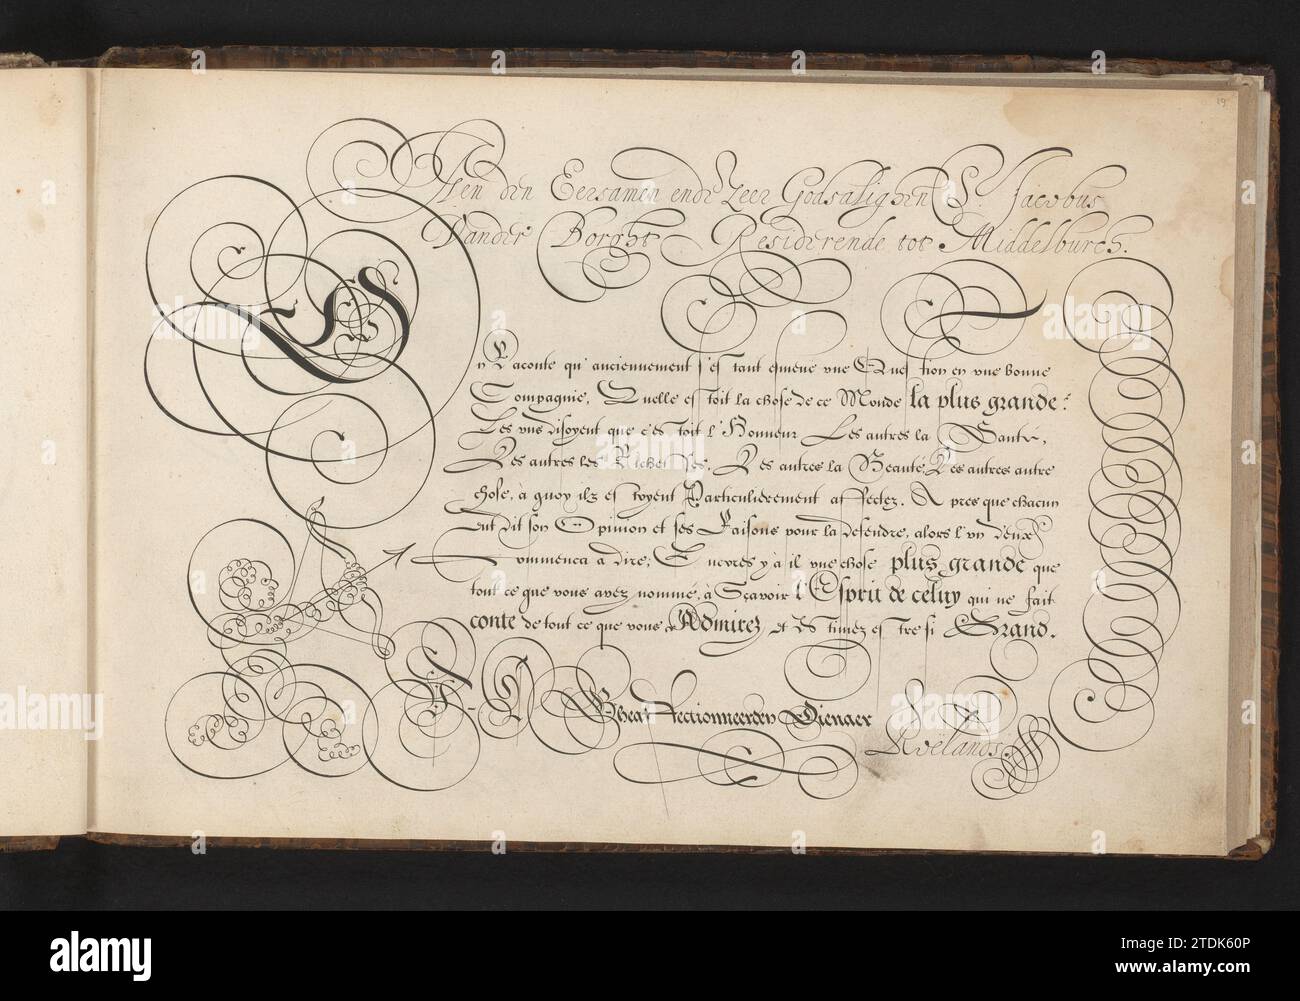 19
Aen den Eersamen ende zeer Godsalighen Sr. Jacobus
Vander Borght Residerende tot Middelburch.
On Raconte qu'anciennement s'est tant esmeüe vne Question en vne bonne
Compagnie, Quelle estoit la chose de ce Monde la plus grande:
Les vns disoyent que c'estoit l'Honneur Les autres la Santé,
Les autres les Richesses, Les autres la Beauté, Les autres autre
chose, à quoy ilz estoyent Particulierement affectez. Apres que chacun
eut dit son Opinion et ses Raisons pour la defendre, alors l'vn d'eux
commenca a dire, Encores y à il vne chose plus grande que
tout ce que vous avez nommé, à Sçavoir l'Esprit de celuy qui ne fait
conte de tout ce que vous Admirez, et Estimez estre si Grand.
V. L. Gheaffectionneerden Dienaer
Roelands.
alamy
Image ID: 2TDK60P
www.alamy.com